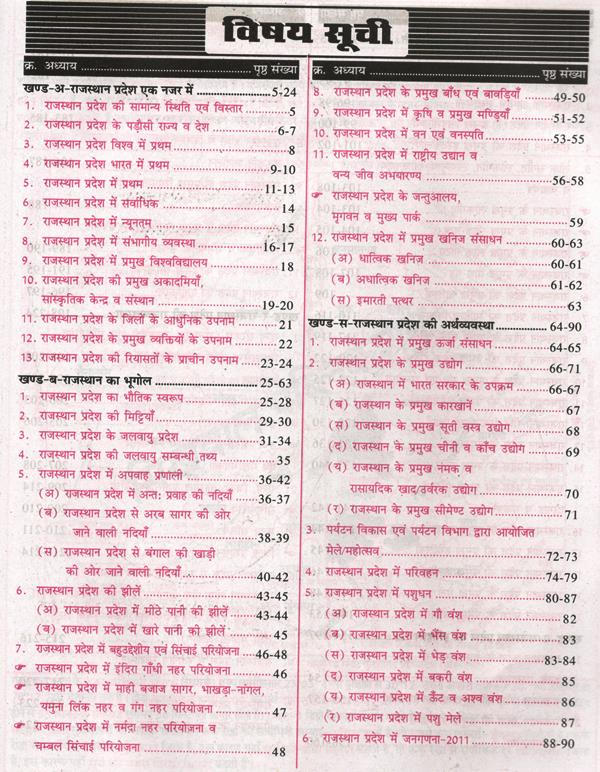 विषय सूची
क्र. अध्याय ........ पृष्ठ संख्या
खण्ड-अ-राजस्थान प्रदेश एक नजर में ........ 5-24
1. राजस्थान प्रदेश की सामान्य स्थिति एवं विस्तार ........ 5
2. राजस्थान प्रदेश के पड़ौसी राज्य व देश ........ 6-7
3. राजस्थान प्रदेश विश्व में प्रथम ........ 8
4. राजस्थान प्रदेश भारत में प्रथम ........ 9-10
5. राजस्थान प्रदेश में प्रथम ........ 11-13
6. राजस्थान प्रदेश में सर्वाधिक ........ 14
7. राजस्थान प्रदेश में न्यूनतम ........ 15
8. राजस्थान प्रदेश में संभागीय व्यवस्था ........ 16-17
9. राजस्थान प्रदेश में प्रमुख विश्वविद्यालय ........ 18
10. राजस्थान प्रदेश की प्रमुख अकादमियाँ,
सांस्कृतिक केन्द्र व संस्थान ........ 19-20
11. राजस्थान प्रदेश के जिलों के आधुनिक उपनाम ........ 21
12. राजस्थान प्रदेश के प्रमुख व्यक्तियों के उपनाम ........ 22
13. राजस्थान प्रदेश की रियासतों के प्राचीन उपनाम ........ 23-24
खण्ड-ब-राजस्थान का भूगोल ........ 25-63
1. राजस्थान प्रदेश का भौतिक स्वरूप ........ 25-28
2. राजस्थान प्रदेश की मिट्टियाँ ........ 29-30
3. राजस्थान प्रदेश के जलवायु प्रदेश ........ 31-34
4. राजस्थान प्रदेश की जलवायु सम्बन्धी तथ्य ........ 35
5. राजस्थान प्रदेश में अपवाह प्रणाली ........ 36-42
(अ) राजस्थान प्रदेश में अन्त: प्रवाह की नदियाँ ........ 36-37
(ब) राजस्थान प्रदेश से अरब सागर की ओर
जाने वाली नदियाँ ........ 38-39
(स) राजस्थान प्रदेश से बंगाल की खाड़ी
की ओर जाने वाली नदियाँ ........ 40-42
6. राजस्थान प्रदेश की झीलें ........ 43-45
(अ) राजस्थान प्रदेश में मीठे पानी की झीलें ........ 43-44
(ब) राजस्थान प्रदेश में खारे पानी की झीलें ........ 45
7. राजस्थान प्रदेश में बहुउद्देशीय एवं सिंचाई परियोजना ........ 46-48
☛ राजस्थान प्रदेश में इंदिरा गाँधी नहर परियोजना ........ 46
☛ राजस्थान प्रदेश में माही बजाज सागर, भाखड़ा-नांगल,
यमुना लिंक नहर व गंग नहर परियोजना ........ 47
☛ राजस्थान प्रदेश में नर्मदा नहर परियोजना व
चम्बल सिंचाई परियोजना ........ 48
क्र. अध्याय ........ पृष्ठ संख्या
8. राजस्थान प्रदेश के प्रमुख बाँध एवं बावड़ियाँ ........ 49-50
9. राजस्थान प्रदेश में कृषि व प्रमुख मण्डियाँ ........ 51-52
10. राजस्थान प्रदेश में वन एवं वनस्पति ........ 53-55
11. राजस्थान प्रदेश में राष्ट्रीय उद्यान व
वन्य जीव अभयारण्य ........ 56-58
☛ राजस्थान प्रदेश के जन्तुआलय,
मृगवन व मुख्य पार्क ........ 59
12. राजस्थान प्रदेश में प्रमुख खनिज संसाधन ........ 60-63
(अ) धात्विक खनिज ........ 60-61
(ब) अधात्विक खनिज ........ 61-62
(स) इमारती पत्थर ........ 63
खण्ड-स-राजस्थान प्रदेश की अर्थव्यवस्था ........ 64-90
1. राजस्थान प्रदेश में प्रमुख ऊर्जा संसाधन ........ 64-65
2. राजस्थान प्रदेश के प्रमुख उद्योग ........ 66-71
(अ) राजस्थान में भारत सरकार के उपक्रम ........ 66-67
(ब) राजस्थान के प्रमुख कारखानें ........ 67
(स) राजस्थान के प्रमुख सूती वस्त्र उद्योग ........ 68
(द) राजस्थान के प्रमुख चीनी व काँच उद्योग ........ 69
(य) राजस्थान के प्रमुख नमक व
रासायदिक खाद/उर्वरक उद्योग ........ 70
(र) राजस्थान के प्रमुख सीमेण्ट उद्योग ........ 71
3. पर्यटन विकास एवं पर्यटन विभाग द्वारा आयोजित
मेले/महोत्सव ........ 72-73
4. राजस्थान प्रदेश में परिवहन ........ 74-79
5. राजस्थान प्रदेश में पशुधन ........ 80-87
(अ) राजस्थान प्रदेश में गौ वंश ........ 82
(ब) राजस्थान प्रदेश में भैंस वंश ........ 83
(स) राजस्थान प्रदेश में भेड़ वंश ........ 83-84
(द) राजस्थान प्रदेश में बकरी वंश ........ 85
(य) राजस्थान प्रदेश में ऊँट व अश्व वंश ........ 86
(र) राजस्थान प्रदेश में पशु मेले ........ 87
6. राजस्थान प्रदेश में जनगणना-2011 ........ 88-90